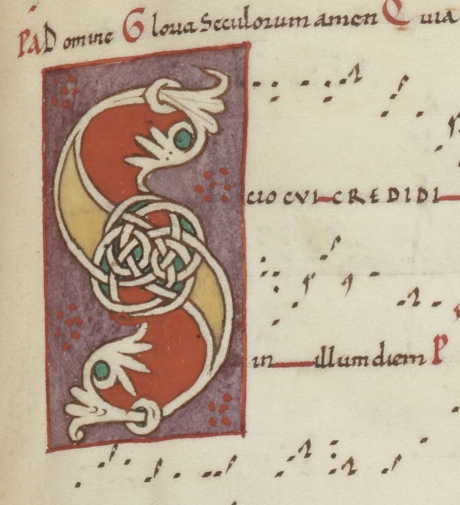 PAD omine Gloria Seculorum amen Quia
SCIO CVI CREDIDI
in illum diem P